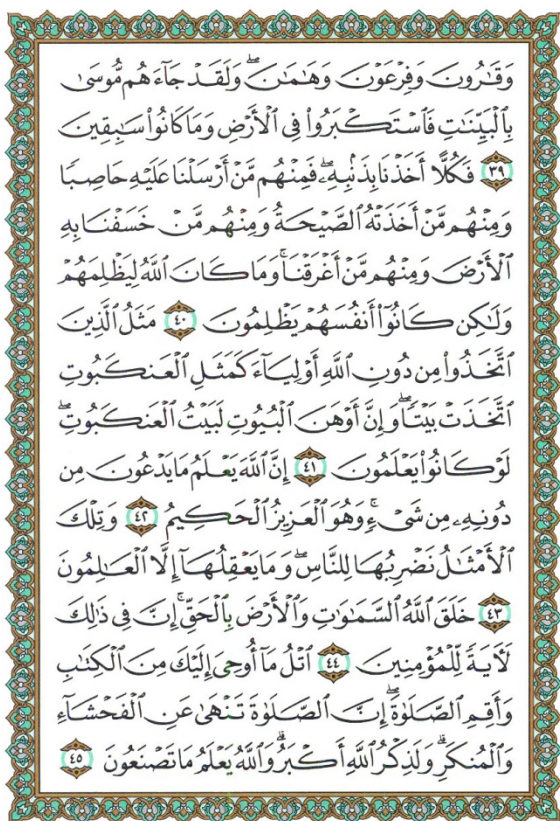 وَقَٰرُونَ وَفِرْعَوْنَ وَهَٰمَٰنَۖ وَلَقَدْ جَآءَهُم مُّوسَىٰ
بِٱلْبَيِّنَٰتِ فَٱسْتَكْبَرُوا۟ فِى ٱلْأَرْضِ وَمَا كَانُوا۟ سَٰبِقِينَ
٣٩ فَكُلًّا أَخَذْنَا بِذَنۢبِهِۦۖ فَمِنْهُم مَّنْ أَرْسَلْنَا عَلَيْهِ حَاصِبًا
وَمِنْهُم مَّنْ أَخَذَتْهُ ٱلصَّيْحَةُ وَمِنْهُم مَّنْ خَسَفْنَا بِهِ
ٱلْأَرْضَ وَمِنْهُم مَّنْ أَغْرَقْنَاۚ وَمَا كَانَ ٱللَّهُ لِيَظْلِمَهُمْ
وَلَٰكِن كَانُوٓا۟ أَنفُسَهُمْ يَظْلِمُونَ ٤٠ مَثَلُ ٱلَّذِينَ
ٱتَّخَذُوا۟ مِن دُونِ ٱللَّهِ أَوْلِيَآءَ كَمَثَلِ ٱلْعَنكَبُوتِ
ٱتَّخَذَتْ بَيْتًاۖ وَإِنَّ أَوْهَنَ ٱلْبُيُوتِ لَبَيْتُ ٱلْعَنكَبُوتِۖ
لَوْ كَانُوا۟ يَعْلَمُونَ ٤١ إِنَّ ٱللَّهَ يَعْلَمُ مَا يَدْعُونَ مِن
دُونِهِۦ مِن شَىْءٍۚ وَهُوَ ٱلْعَزِيزُ ٱلْحَكِيمُ ٤٢ وَتِلْكَ
ٱلْأَمْثَٰلُ نَضْرِبُهَا لِلنَّاسِۖ وَمَا يَعْقِلُهَآ إِلَّا ٱلْعَٰلِمُونَ
٤٣ خَلَقَ ٱللَّهُ ٱلسَّمَٰوَٰتِ وَٱلْأَرْضَ بِٱلْحَقِّۚ إِنَّ فِى ذَٰلِكَ
لَءَايَةً لِّلْمُؤْمِنِينَ ٤٤ ٱتْلُ مَآ أُوحِىَ إِلَيْكَ مِنَ ٱلْكِتَٰبِ
وَأَقِمِ ٱلصَّلَوٰةَۖ إِنَّ ٱلصَّلَوٰةَ تَنْهَىٰ عَنِ ٱلْفَحْشَآءِ
وَٱلْمُنكَرِۗ وَلَذِكْرُ ٱللَّهِ أَكْبَرُۗ وَٱللَّهُ يَعْلَمُ مَا تَصْنَعُونَ ٤٥